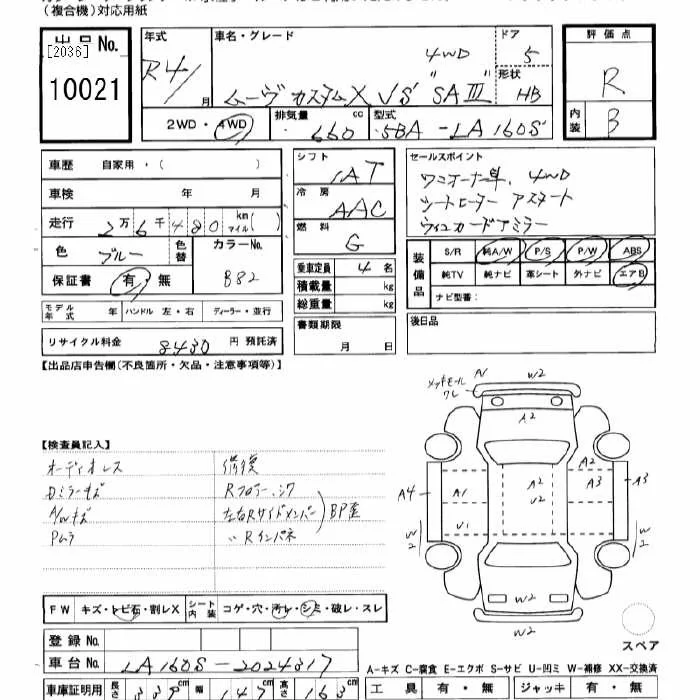 （複合機）対応用紙
出品No.
[2036]
10021
年式
R4/
月
車名・グレード
4WD
ムーヴ カスタムX VS "SAⅢ"
ドア
5
形状
HB
評価点
R
内装
B
2WD・4WD
排気量
660
cc
型式
5BA-LA160S
車歴 自家用・( )
車検 年 月
走行 2万6千480 km マイル( )
色 ブルー 色替
カラーNo.
B82
保証書 有・無
モデル年式 年 ハンドル 左・右 ディーラー・並行
リサイクル料金 8430 円 預託済
シフト
IAT
冷房
AAC
燃料
G
乗車定員 4 名
積載量 kg
総重量 kg
書類期限
月 日
セールスポイント
ワンオーナー車、4WD
シートヒーター アスタート
ウィンカードアミラー
装備品
S/R 純A/W P/S P/W ABS
純TV 純ナビ 革シート 外ナビ エアB
ナビ型番：
後日品
【出品店申告欄(不良箇所・欠品・注意事項等)】
【検査員記入】
オーディオレス
Dミラーキズ
A/Wキズ
Pムラ
修復
Rフロアー
左右Rサイドメンバー
〃 Rインパネ
BP歪
メッキモール
ワレ
A1 W2
A2
A2
U2
A1
U1
A2
A3
A3
A4
W2
W2
W2
スペア
FW キズ・トビ石・割レX シート内装 コゲ・穴・汚レ・シミ・破レ・スレ
登録No.
車台No. LA160S-2024317
車庫証明用 長さ 339 cm 幅 147 cm 高さ 163 cm
A-キズ C-腐食 E-エクボ S-サビ U-凹ミ W-補修 XX-交換済
工具 有・無 ジャッキ 有・無